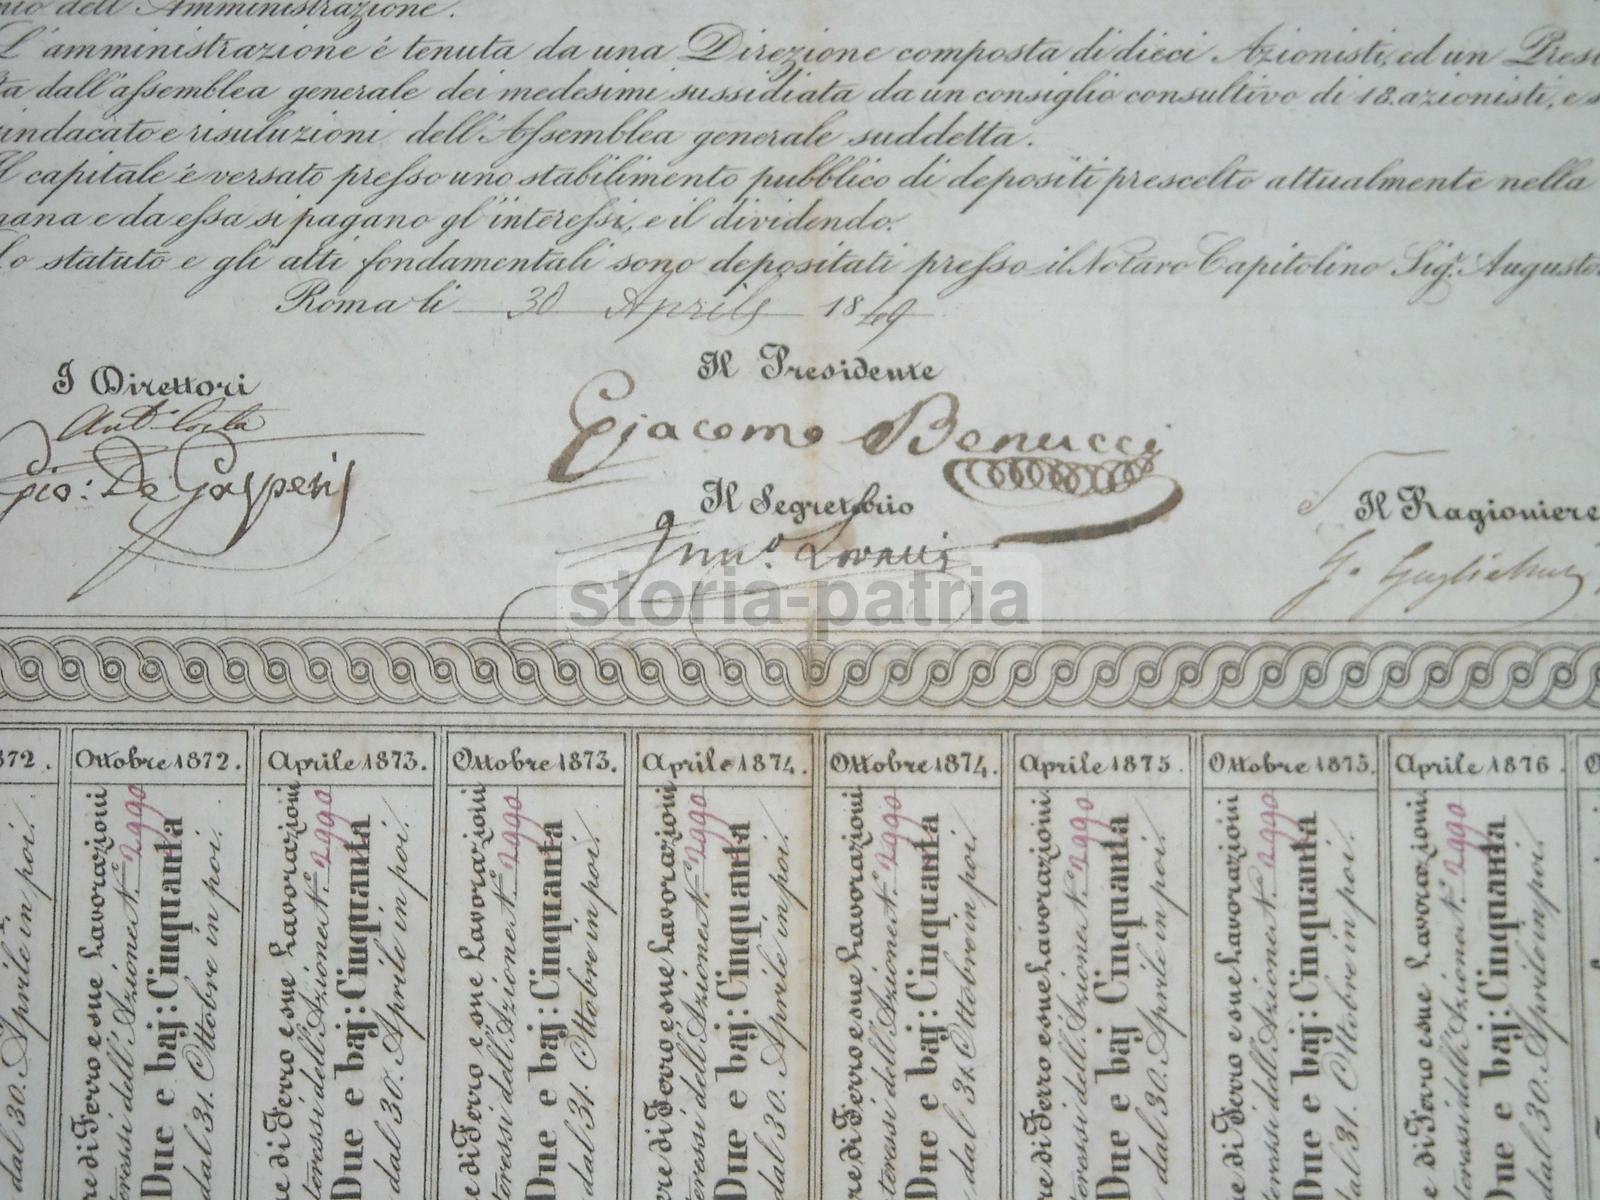 nio dell'Amministrazione.
L'amministrazione é tenuta da una Direzione composta di dieci Azionisti, ed un Presi
ta dall'assemblea generale dei medesimi sussidiata da un consiglio consultivo di 18. azionisti, e s
sindacato e risuluzioni dell'Assemblea generale suddetta.
Il capitale è versato presso uno stabilimento pubblico di depositi prescelto attualmente nella
mana e da essa si pagano gl'interessi, e il dividendo.
Lo statuto e gli atti fondamentali sono depositati presso il Notaro Capitolino Sig.r Augusto
Roma li 30 Aprile 1849
Il Presidente
I Direttori
Giacomo Benucci
Gio: De Gasperis
Il Segretario
Il Ragioniere
storia-patria
872. Ottobre 1872. Aprile 1873. Ottobre 1873. Aprile 1874. Ottobre 1874. Aprile 1875. Ottobre 1875. Aprile 1876. O
dal 30. Aprile in poi.
re di Ferro e sue Lavorazioni
teressi dell'Azione N.° 2990
Due e baj: Cinquanta
dal 31. Ottobre in poi.
e di Ferro e sue Lavorazioni
teressi dell'Azione N.° 2990
Due e baj: Cinquanta
dal 30. Aprile in poi.
e di Ferro e sue Lavorazioni
teressi dell'Azione N.° 2990
Due e baj: Cinquanta
dal 31. Ottobre in poi.
re di Ferro e sue Lavorazioni
teressi dell'Azione N.° 2990
Due e baj: Cinquanta
dal 30. Aprile in poi.
re di Ferro e sue Lavorazioni
teressi dell'Azione N.° 2990
Due e baj: Cinquanta
dal 31. Ottobre in poi.
re di Ferro e sue Lavorazioni
teressi dell'Azione N.° 2990
Due e baj Cinquanta
dal 30. Aprile in poi.
re di Ferro e sue Lavorazioni
teressi dell'Azione N.° 2990
Due e baj: Cinquanta
dal 31. Ottobre in poi.
e di Ferro e sue Lavorazioni
teressi dell'Azione N.° 2990
Due e baj: Cinquanta
dal 30. Aprile in poi.